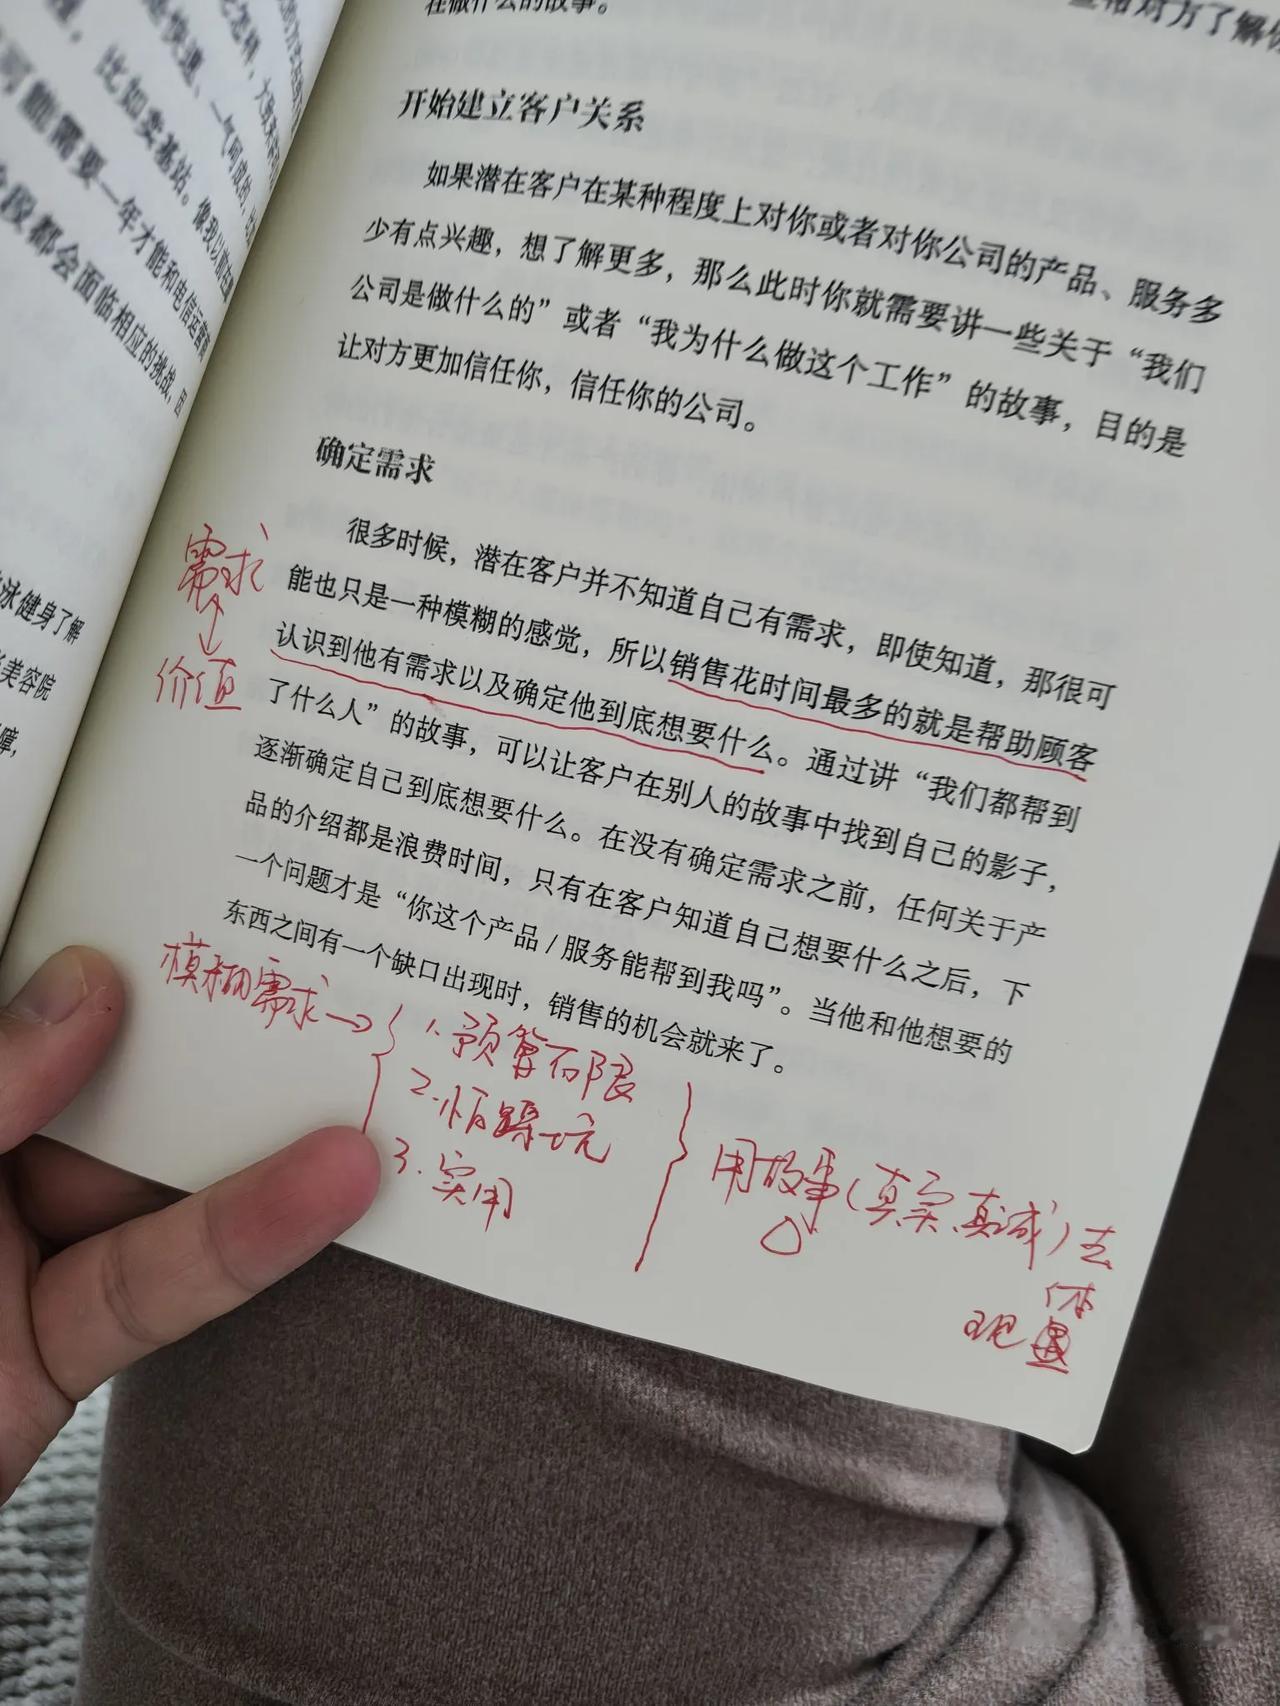 在做什么的故事。
对方了解你
开始建立客户关系
如果潜在客户在某种程度上对你或者对你公司的产品、服务多
少有点兴趣，想了解更多，那么此时你就需要讲一些关于“我们
公司是做什么的”或者“我为什么做这个工作”的故事，目的是
让对方更加信任你，信任你的公司。
确定需求
很多时候，潜在客户并不知道自己有需求，即使知道，那很可
能也只是一种模糊的感觉，所以销售花时间最多的就是帮助顾客
认识到他有需求以及确定他到底想要什么。通过讲“我们都帮到
了什么人”的故事，可以让客户在别人的故事中找到自己的影子，
逐渐确定自己到底想要什么。在没有确定需求之前，任何关于产
品的介绍都是浪费时间，只有在客户知道自己想要什么之后，下
一个问题才是“你这个产品/服务能帮到我吗”。当他和他想要的
东西之间有一个缺口出现时，销售的机会就来了。
需求
↕
价值
模糊需求→
1.预算有限
2.怕踩坑
3.实用
用故事(真实、真诚)去
体
现
比如卖基站。像我以前在
可能需要一年才能和电信运营商
段都会面临相应的挑战，
泳健身了解
美容院
障，